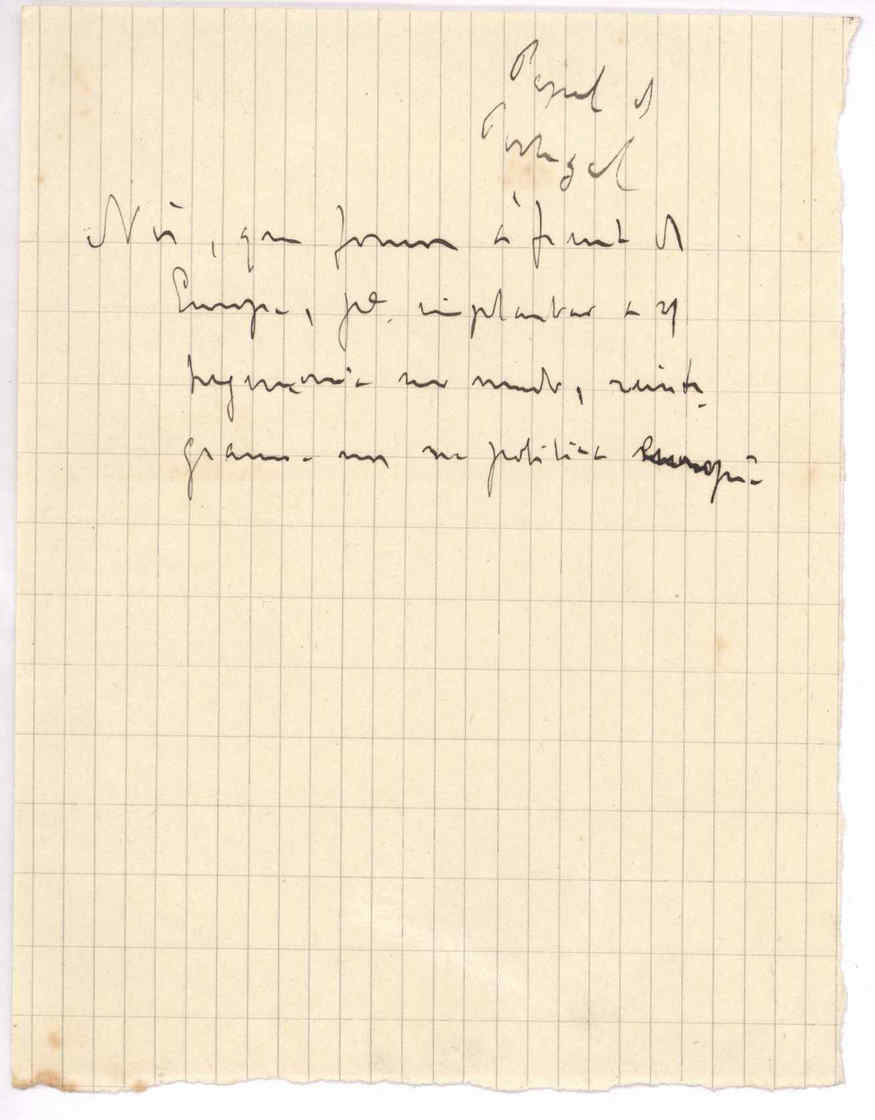 Papel de
Portugal
Nós, que fomos à frente da
Europa, pª implantar a
hegemonia no mundo, reinte-
gramo-nos na politica europêa